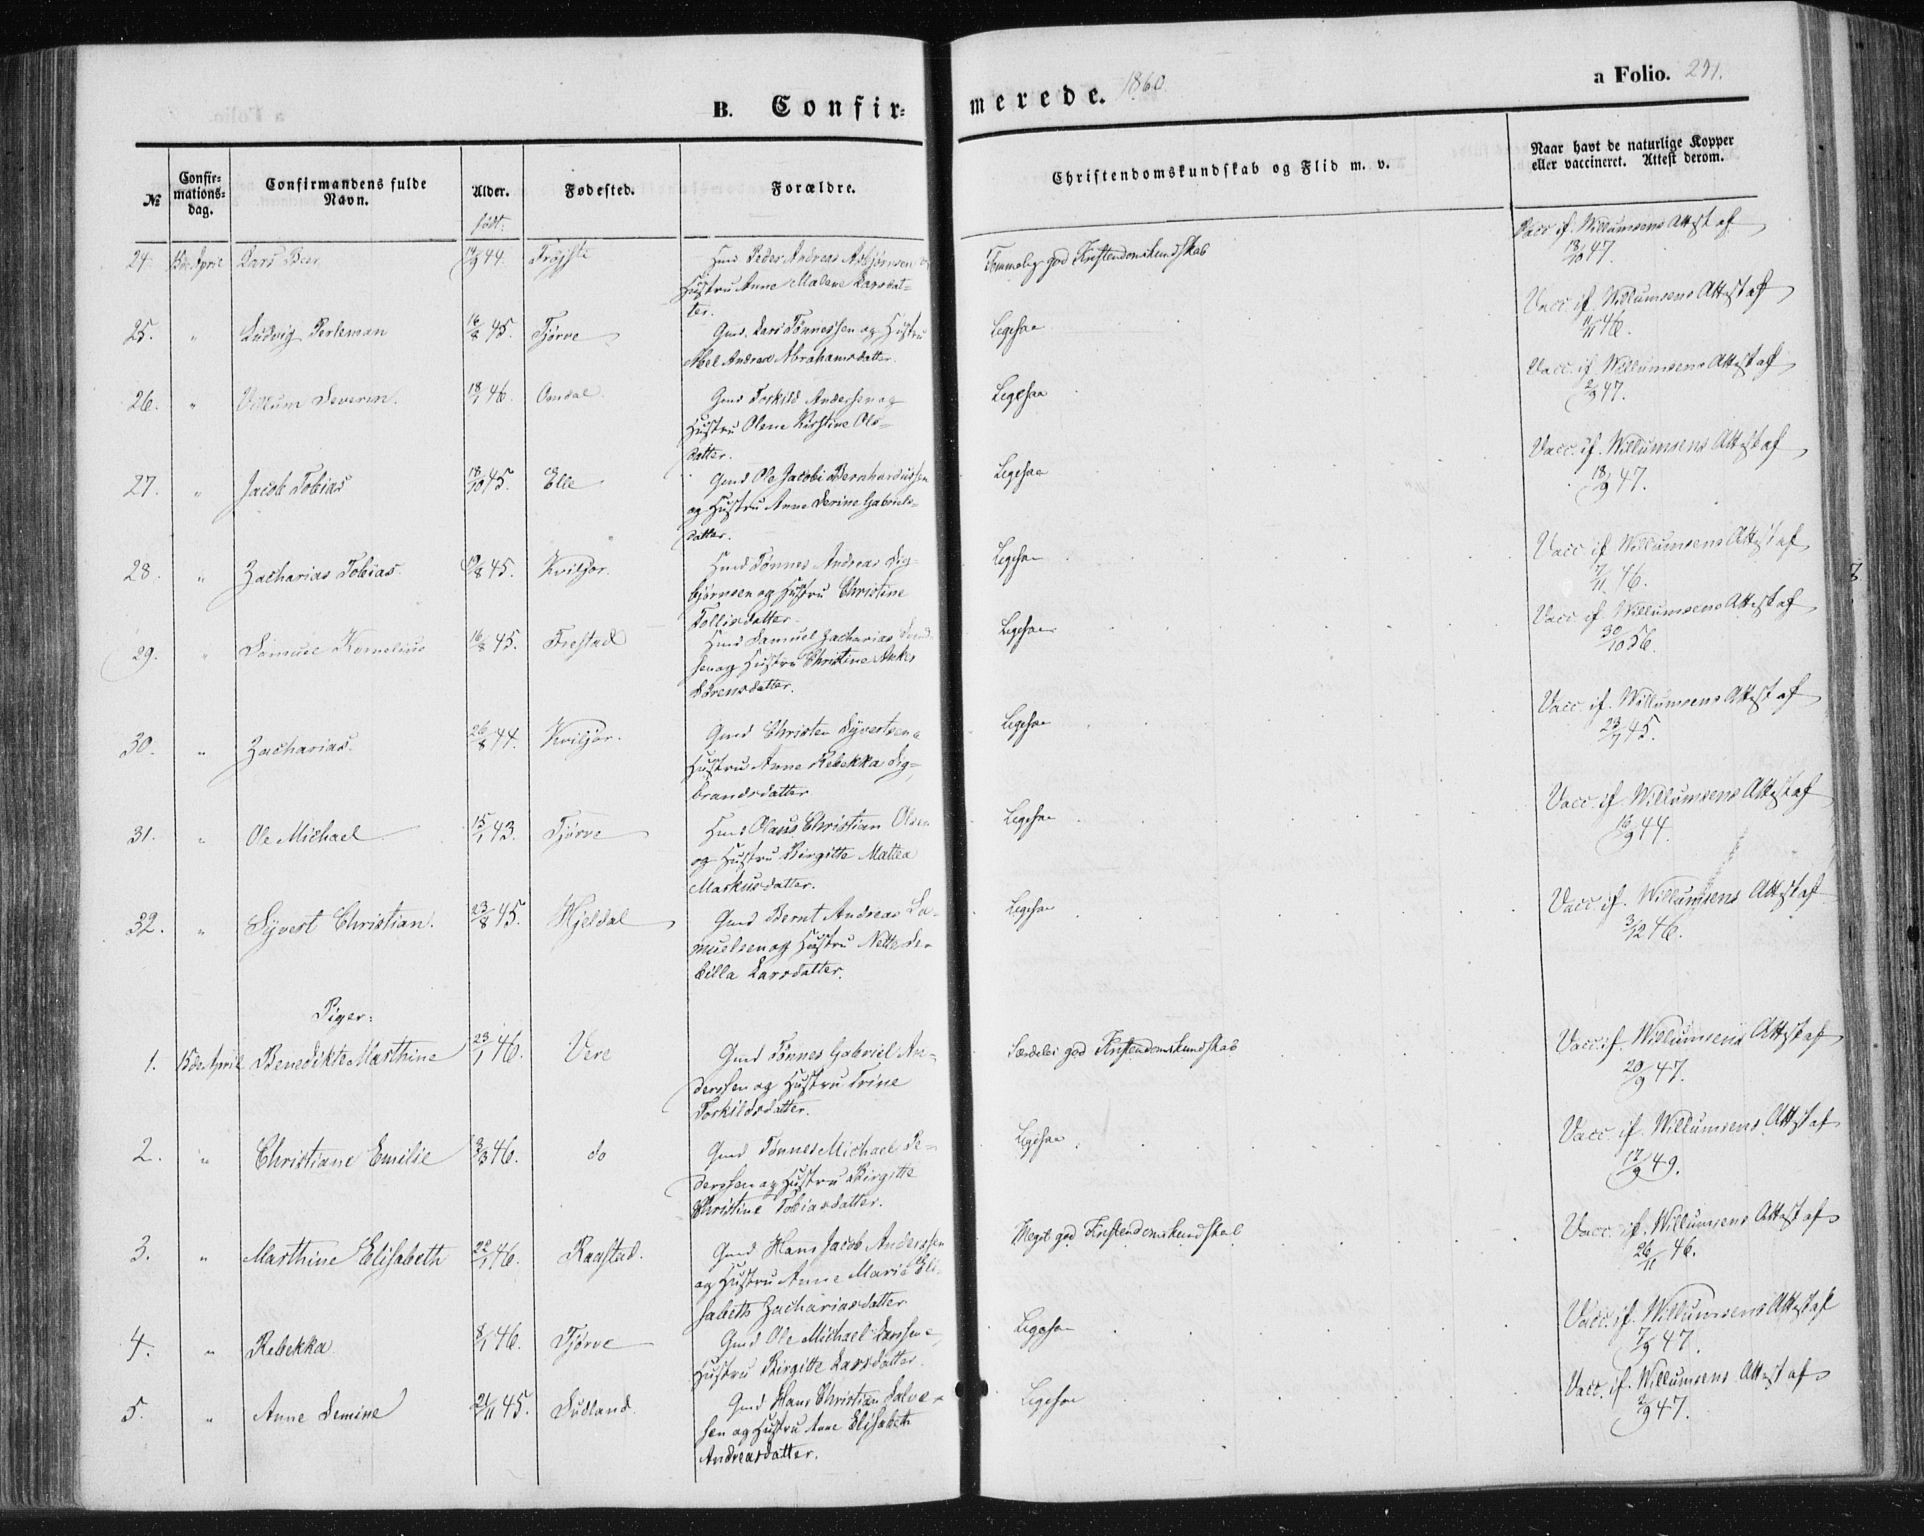 B. Confir=
merede. 1860.
a Folio. 291.
№
Confir=
mations=
dag.
Confirmandens fulde
Navn.
Alder.
født:
Fødested.
Forældre.
Christendomskundskab og Flid m. v.
Naar havt de naturlige Kopper
eller vaccineret. Attest derom.
24. 15de April Lars Beer 44.
Hmd Peder Andreas Asbjørnsen og
Hustru Anne Malene Larsdat=
ter.
Temmelig god Kristendomskundskab
Vacc. if. Willumsens Attest af
13/10 47.
25. " Ludvig Perleman 16/8 45. Tjørve
Gmd. Lars Tønnessen og Hustru
Abel Andrea Abrahamsdatter.
Ligesaa
Vacc. if. Willumsens Attest af
11/11 46.
26. " Villum Severin. 18/1 46. Omdal.
Gmd Torkild Andersen og
Hustru Olene Kirstine Ols=
datter.
Ligesaa
Vacc. if. Willumsens Attest af
2/9 47.
27. " Jacob Tobias 18/10 45. Elle
Gmd Ole Jacobi Bernhardussen
og Hustru Anne Serine Gabriels=
datter.
Ligesaa
Vacc. if. Willumsens Attest af
18/9 47.
28. " Zacharias Tobias. 19/8 45. Kviljor.
Hmd Tønnes Andreas Sig=
bjørnsen og Hustru Christine
Tollisdatter.
Ligesaa
Vacc. if. Willumsens Attest af
7/11 46.
29. " Samuel Kornelius 16/8 45. Frestad
Hmd Samuel Zacharias Svend=
sen og Hustru Christine Anker
Sørensdatter.
Ligesaa
Vacc. if. Willumsens Attest af
30/10 56.
30. " Zacharias. 26/8 44. Kviljor.
Gmd Christen Syvertsen o
Hustru Anne Rebekka Sig=
brandsdatter
Ligesaa
Vacc. if. Willumsens Attest af
23/7 45.
31. " Ole Michael 15/1 43. Tjørve
Hmd Olaus Christian Olsen
og Hustru Birgitte Mattea
Markusdatter.
Ligesaa
Vacc. if. Willumsens Attest af
16/9 44.
32. " Syvert Christian. 23/8 45. Hjeldal
Gmd Bernt Andreas Sa=
muelsen og Hustru Nette Se=
cilla Larsdatter.
Ligesaa
Vacc. if. Willumsens Attest af
3/12 46.
Piger:
1. 15de April Benedikte Marthine 23/1 46. Vere
Gmd Tønnes Gabriel An=
derssen og Hustru Trine
Torkildsdatter.
Særdeles god Kristendomskundskab
Vacc. if. Willumsens Attest af
20/9 47.
2. " Christiane Emilie 3/3 46. do
Gmd Tønnes Michael Pe=
derssen og Hustru Birgitte
Christine Tobiasdatter.
Ligesaa
Vacc. if. Willumsens Attest af
17/9 49.
3. " Marthine Elisabeth 22/1 46. Raastad.
Gmd Hans Jacob Anderssen
og Hustru Anne Marie Eli=
sabeth Zachariasdatter
Meget god Kristendomskundskab
Vacc. if. Willumsens Attest af
26/11 46.
4. " Rebekka 8/1 46. Tjørve
Gmd Ole Michael Larssen o
Hustru Birgitte Larsdatter.
Ligesaa
Vacc. if. Willumsens Attest af
7/9 47.
5. " Anne Semine 21/11 45. Sudland.
Gmd Hans Christian Salve=
sen og Hustru Anne Elisabeth
Andreasdatter.
Ligesaa
Vacc. if. Willumsens Attest af
2/9 47.